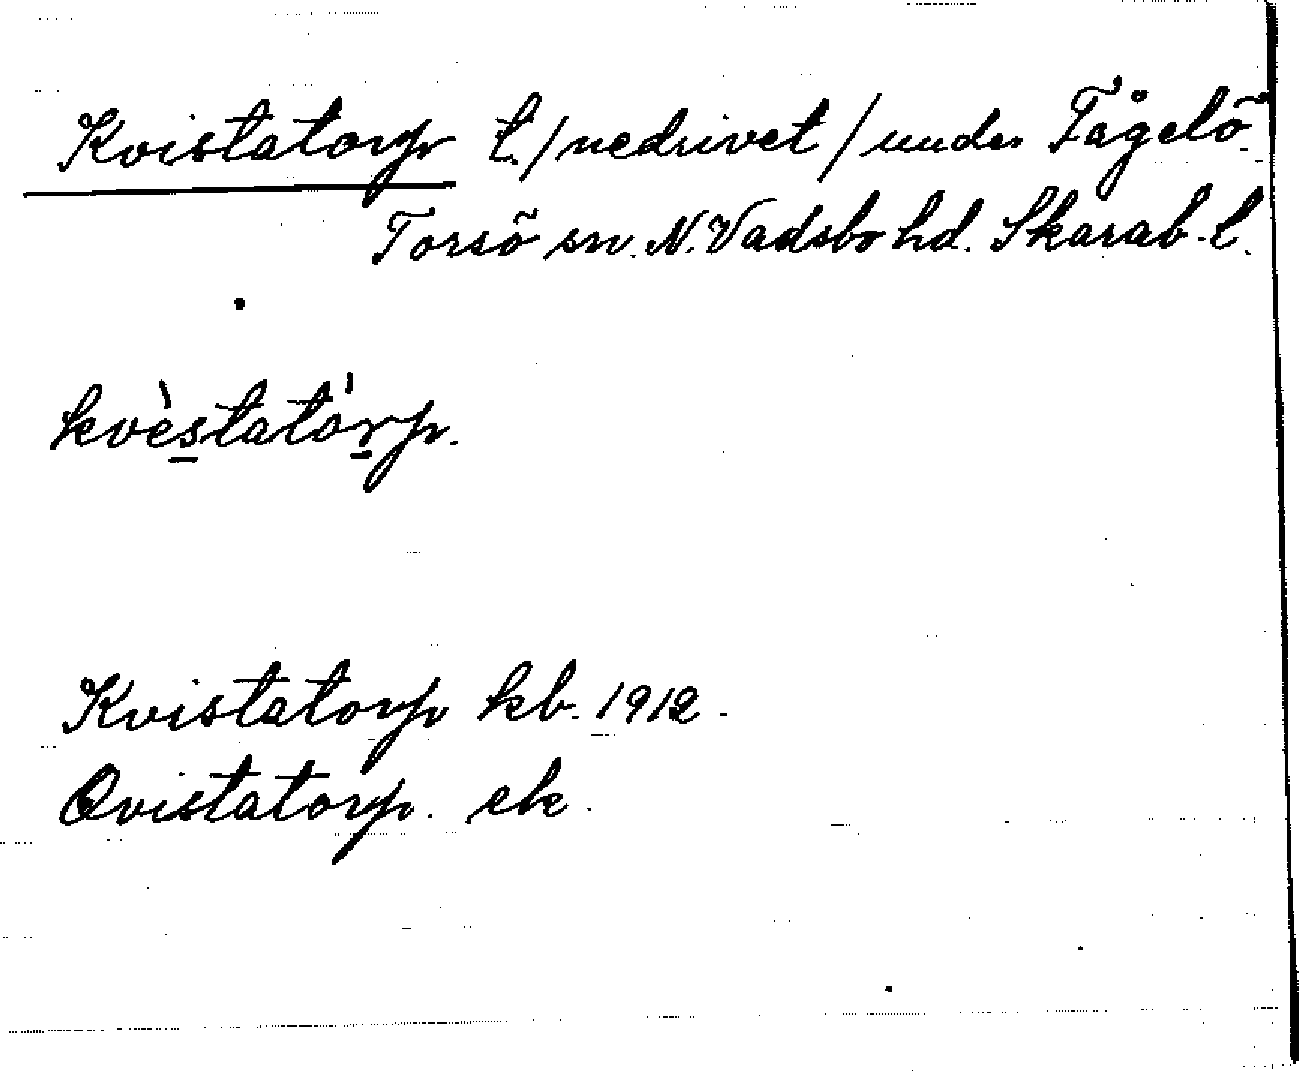 Kvistatorp t./nedrivet/under Fågelö
Torsö sn. N. Vadsbo hd. Skarab. l.
kvèstatárp.
Kvistatorp kb. 1912.
Qvistatorp. ek.